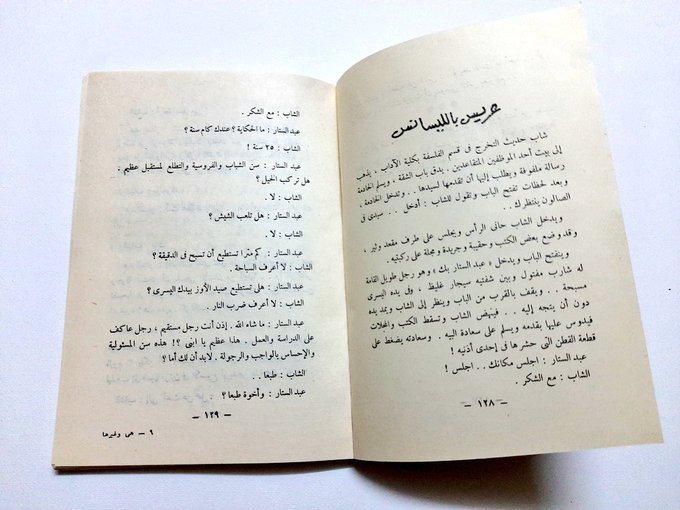 عريس بالليسانس
شاب حديث التخرج في قسم الفلسفة بكلية الآداب ، يذهب
إلى بيت أحد الموظفين المتقاعدين . يدق باب الشقة ، ويسلم الخادمة
رسالة ملفوفة ويطلب إليها أن تقدمها لسيدها . . وتدخل الخادمة ،
وبعد لحظات تفتح الباب وتقول للشاب : أدخل . . سيدى فى
الصالون بنتظرك . .
ويدخل الشاب حانى الرأس ويجلس على طرف مقعد وثير ،
وقد وضع بعض الكتب وحقيبة وجريدة ومجلة على ركبتيه .
وينفتح الباب ويدخل « عبد الستار بك » وهو رجل طويل القامة
له شارب مفتول وبين شفتيه سيجار غليظ ، وفى يده اليسرى
مسبحة . . ويقف بالقرب من الباب وينظر إلى الشاب ويمد يده
دون أن يتجه إليه . . فينهض الشاب وتسقط الكتب والمجلات
فيدوس عليها بقدمه ويسلم على سعادة البيه . . وسعادته يضغط على
قطعة القطن التى حشرها فى إحدى أذنيه !
عبد الستار : اجلس مكانك . . اجلس !
الشاب : مع الشكر .
— ١٢٨ —
الشاب : مع الشكر .
عبد الستار : ما الحكاية ؟ عندك كام سنة ؟
الشاب : ٢٥ سنة !
عبد الستار : سن الشباب والفروسية والتطلع لمستقبل عظيم .
هل تركب الخيل ؟
الشاب : لا .
عبد الستار : هل تلعب الشيش ؟
الشاب : لا .
عبد الستار : كم مترا تستطيع أن تسبح فى الدقيقة ؟
الشاب : لا أعرف السباحة .
عبد الستار : هلى تستطيع صيد الأوز بيدك اليسرى ؟
الشاب : لا أعرف ضرب النار .
عبد الستار : ما شاء الله . إذن أنت رجل مستقيم ، رجل عاكف
على الدراسة والعمل . هذا عظيم يا ابنى ؟! هذه سن المسئولية
والإحساس بالواجب والرجولة . لابد أن لك أما ؟
الشاب : طبعا . .
عبد الستار : وأخوة طبعا ؟
— ١٢٩ —
٩ — هى وغيرها